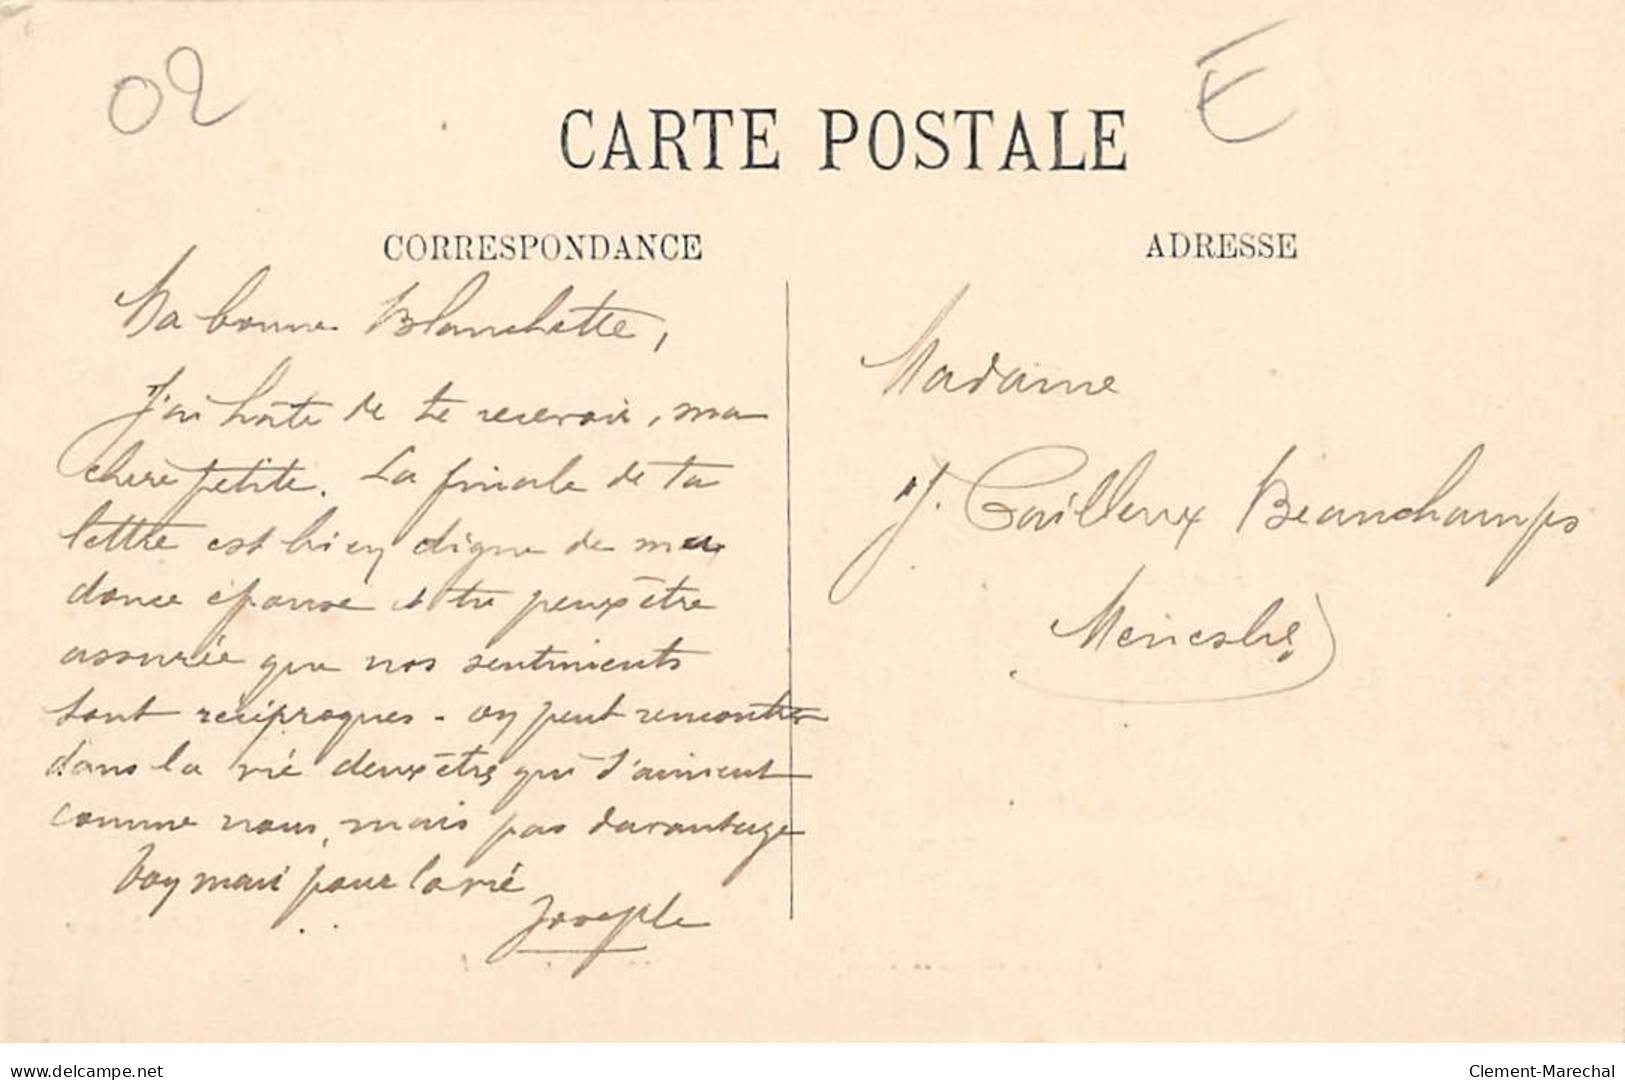 02
E
CARTE POSTALE
CORRESPONDANCE
ADRESSE
Ma bonne Blanchette,
J'ai hâte de te recevoir, ma
chère petite. La finale de ta
lettre est bien digne de ma
douce épouse et tu peux être
assurée que nos sentiments
sont réciproques - on peut rencontrer
dans la vie deux êtres qui s'aiment
comme nous, mais pas davantage
Ton mari pour la vie
Joseph
Madame
J. Cailleux Beauchamps
delcampe.net
Clement-Marechal